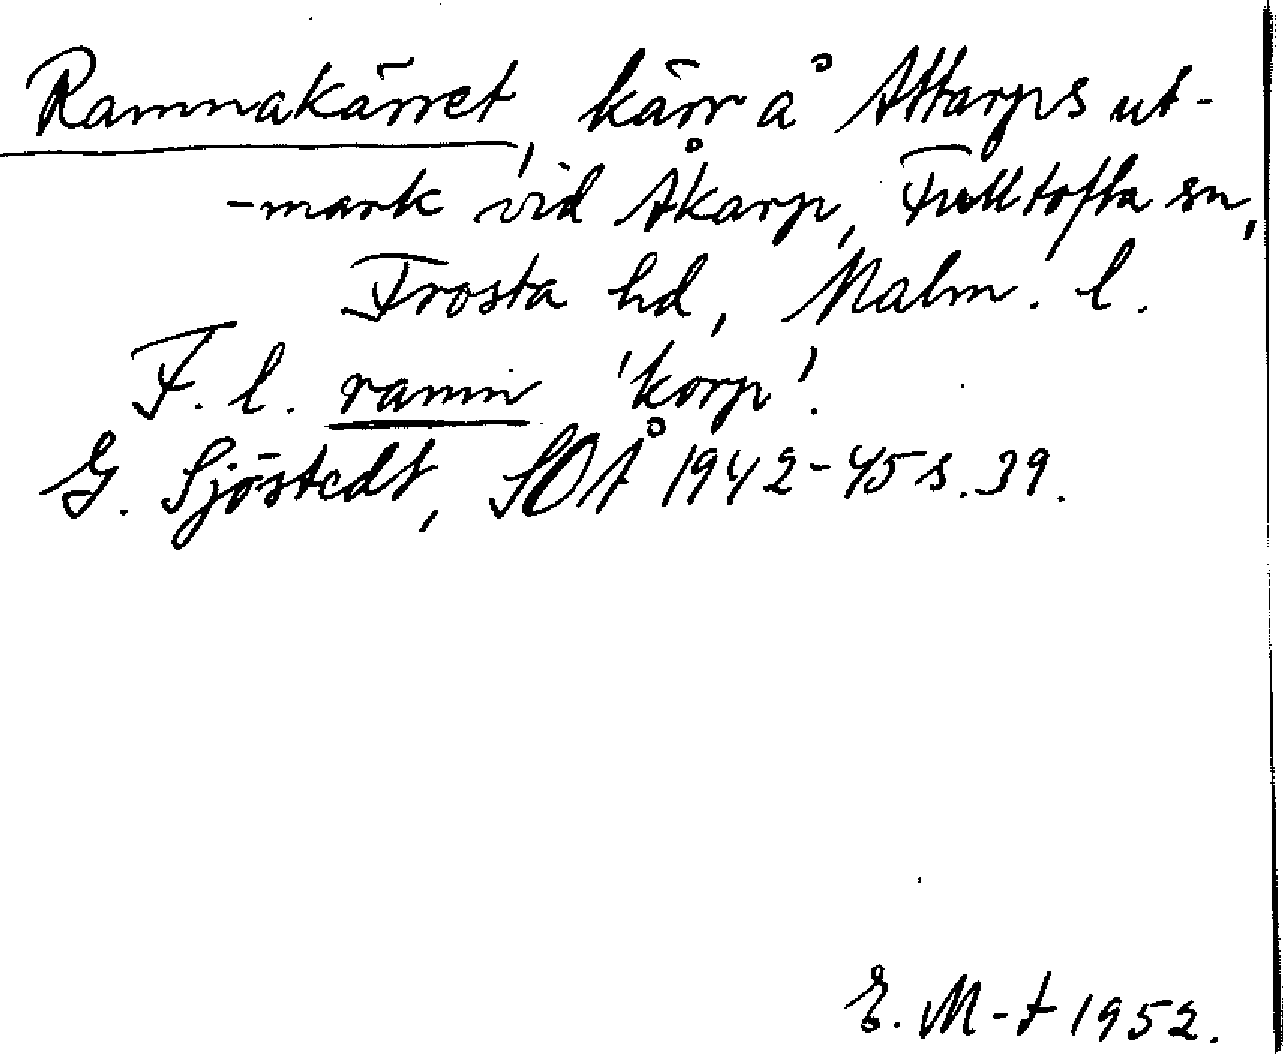 Ramnakärret, kärr å Attarps ut-
-mark vid Åkarp, Fulltofta sn,
Frosta hd, Malm. l.
F. l. ramn 'korp'.
G. Sjöstedt, SOÅ 1942-45 s. 39.
E. M-t 1952.